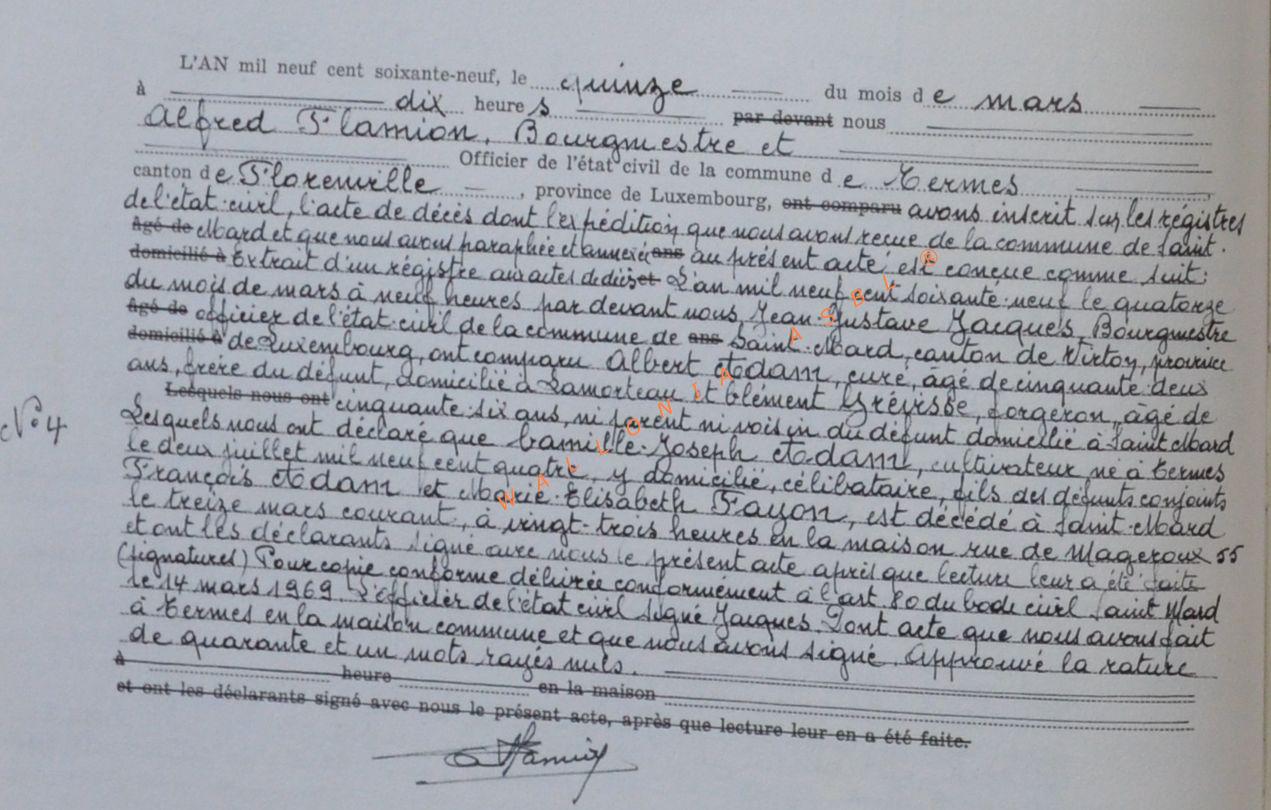 L'AN mil neuf cent soixante-neuf, le quinze du mois de mars
à dix heures par devant nous
Alfred Flamion, Bourgmestre et
Officier de l'état civil de la commune de Termes
canton de Florenville, province de Luxembourg, ont comparu avons inscrit sur les régistres
de l'état-civil, l'acte de décès dont l'expédition que nous avons recue de la commune de Saint-
Agé de Mard et que nous avons paraphée et annexée ans au présent acte, est conçue comme suit:
domicilié à Extrait d'un régistre aux actes de décès et L'an mil neuf cent soixante-neuf le quatorze
du mois de mars à neuf heures par devant nous Jean-Gustave Jacques, Bourgmestre
Agé de officier de l'état-civil de la commune de ans Saint-Mard, canton de Virton, province
domicilié à de Luxembourg, ont comparu Albert Adam, curé, âgé de cinquante-deux
ans, frère du défunt, domicilié à Lamorteau et Clément Grévisse, forgeron, âgé de
Lesquels nous ont cinquante-six ans, ni parent ni voisin du défunt domicilié à Saint-Mard
Lesquels nous ont déclaré que Camille-Joseph Adam, cultivateur né à Termes
le deux juillet mil neuf cent quatre, y domicilié, célibataire, fils des défunts conjoints
François Adam et Marie-Elisabeth Fayon, est décédé à Saint-Mard
le treize mars courant, à vingt-trois heures en la maison rue de Mageroux 55
et ont les déclarants signé avec nous le présent acte après que lecture leur a été faite
(signatures) Pour copie conforme délivrée conformément à l'art. 80 du Code civil Saint Mard
le 14 mars 1969 L'officier de l'état civil signé Jacques. Dont acte que nous avons fait
à Termes en la maison commune et que nous avons signé. Approuvé la rature
de quarante et un mots rayés nuls.
à heure en la maison
et ont les déclarants signé avec nous le présent acte, après que lecture leur en a été faite.
N° 4
WALLONIA ASBL ®